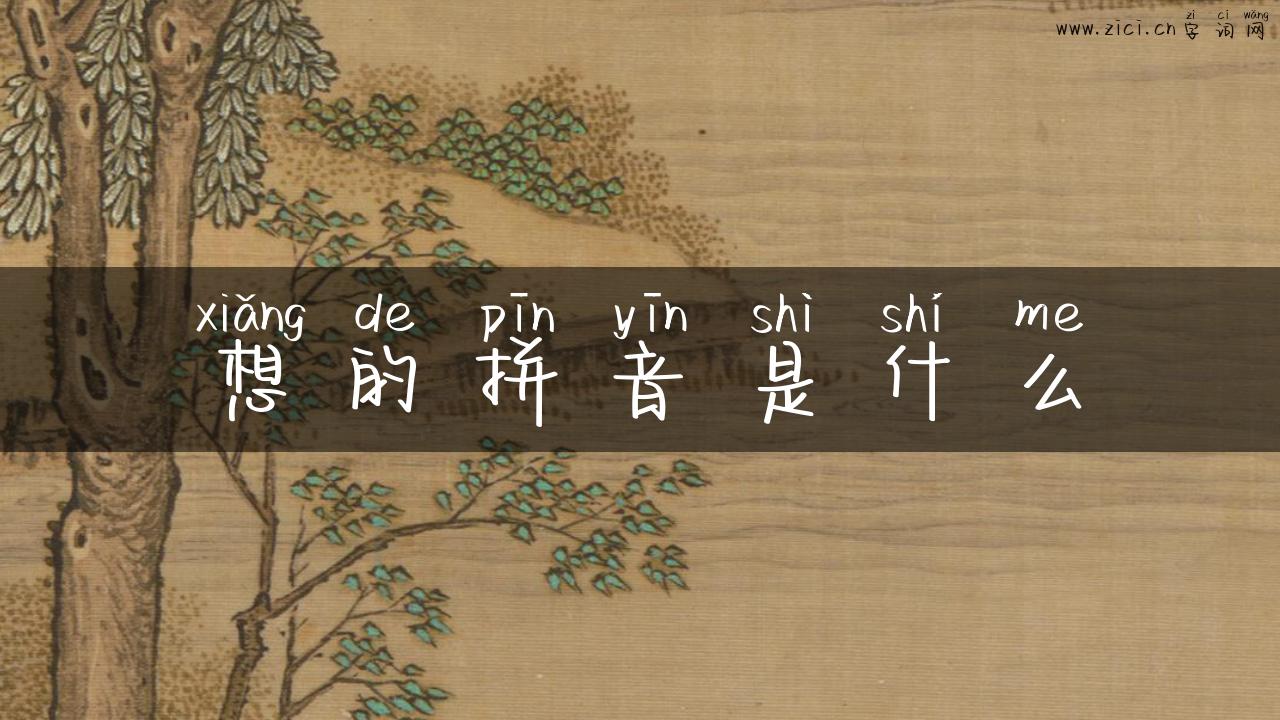 zì cí wǎng
www.zici.cn 字词网
xiǎng de pīn yīn shì shí me
想的拼音是什么